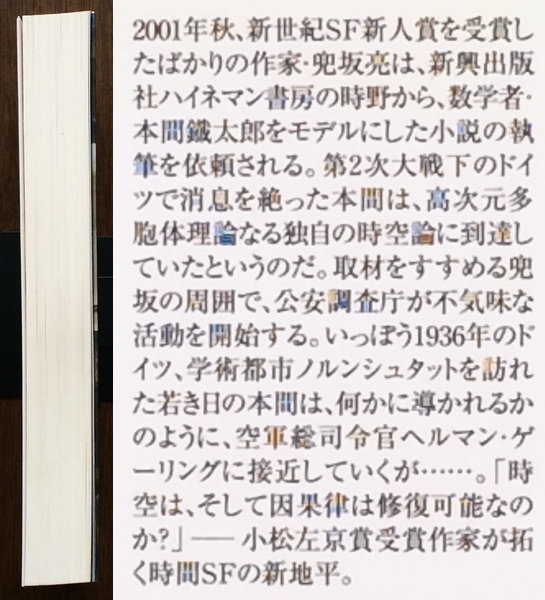 2001年秋、新世紀SF新人賞を受賞し
たばかりの作家·兜坂亮は、新興出版
社ハイネマン書房の時野から、数学者·
本間鐵太郎をモデルにした小説の執
筆を依頼される。第2次大戦下のドイ
ツで消息を絶った本間は、高次元多
胞体理論なる独自の時空論に到達し
ていたというのだ。取材をすすめる兜
坂の周囲で、公安調査庁が不気味な
活動を開始する。いっぽう1936年のド
イツ、学術都市ノルンシュタットを訪れ
た若き日の本間は、何かに導かれるか
のように、空軍総司令官ヘルマン·ゲ
ーリングに接近していくが……。「時
空は、そして因果律は修復可能なの
か?」── 小松左京賞受賞作家が拓
く時間SFの新地平。